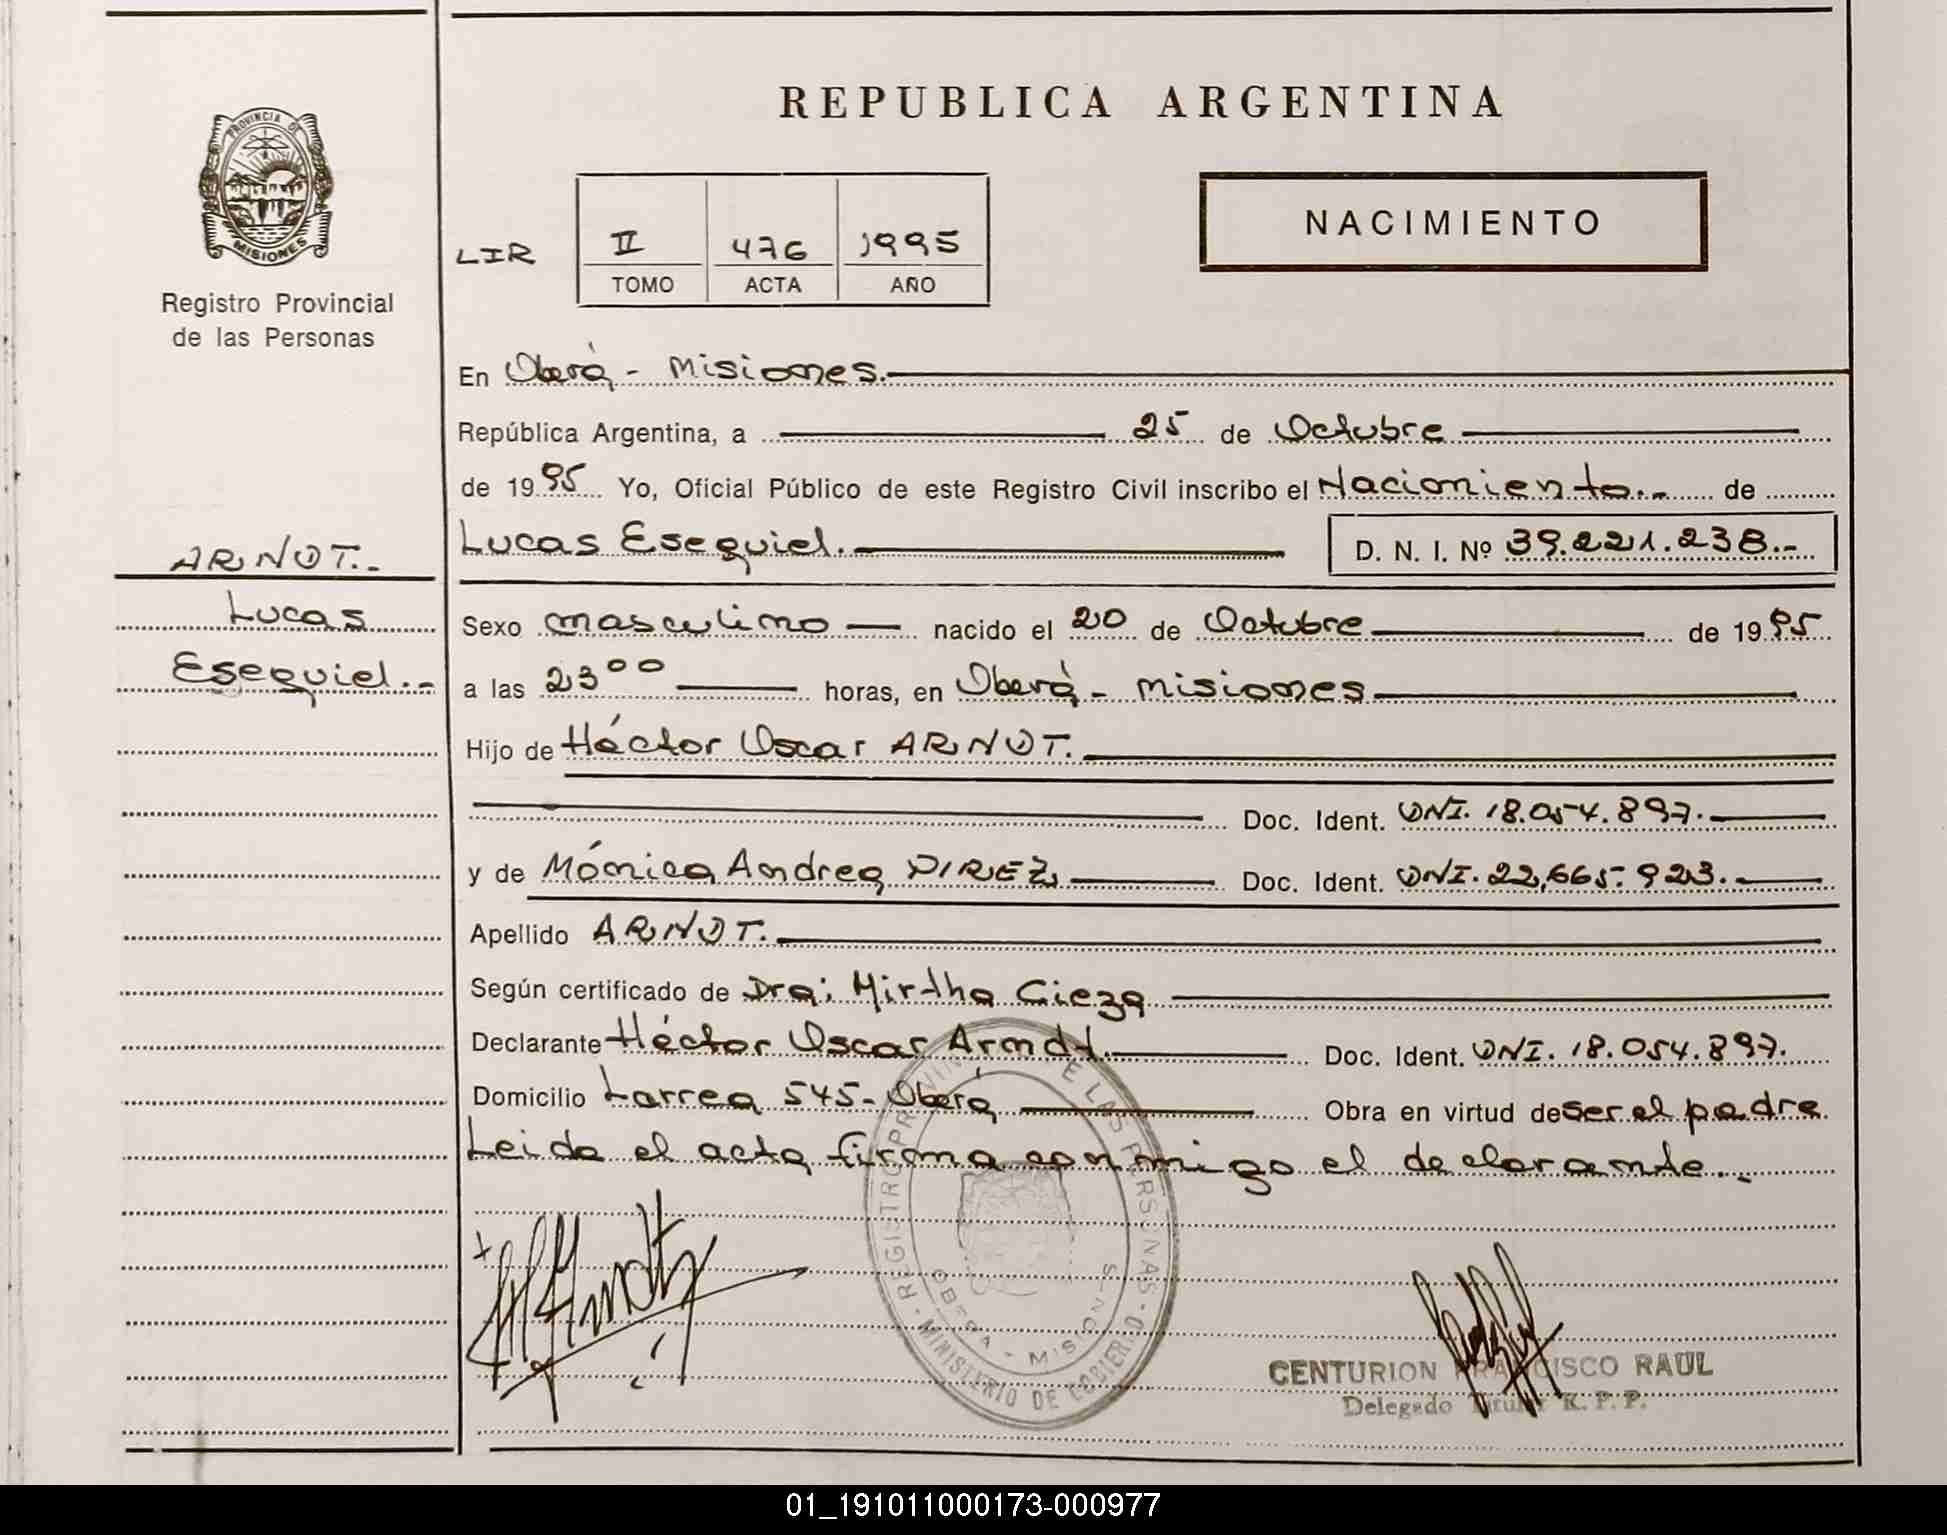 REPUBLICA ARGENTINA
PROVINCIA DE
MISIONES
Registro Provincial
de las Personas
LIR
II 476 1995
TOMO ACTA AÑO
NACIMIENTO
En Oberá - Misiones.
República Argentina, a 25 de Octubre
de 1995 Yo, Oficial Público de este Registro Civil inscribo el Nacimiento.- de
Lucas Esequiel.- D. N. I. Nº 39.221.238.-
ARNDT.-
Lucas
Esequiel.-
Sexo masculino nacido el 20 de Octubre de 1995
a las 23 00 horas, en Oberá - Misiones
Hijo de Héctor Oscar ARNDT.
Doc. Ident. DNI. 18.054.897.
y de Mónica Andrea PIREZ Doc. Ident. DNI. 22,665.923.
Apellido ARNDT.
Según certificado de Dra; Mirtha Cieza
Declarante Héctor Oscar Arndt. Doc. Ident. DNI. 18.054.897.
Domicilio Larrea 545- Oberá Obra en virtud de ser el padre
Leida el acta firma conmigo el declarante.-
REGISTRO PROVINCIAL DE LAS PERSONAS
OBERA - MISIONES
MINISTERIO DE GOBIERNO
CENTURION FRANCISCO RAUL
Delegado Titular R. P. P.
01_191011000173-000977